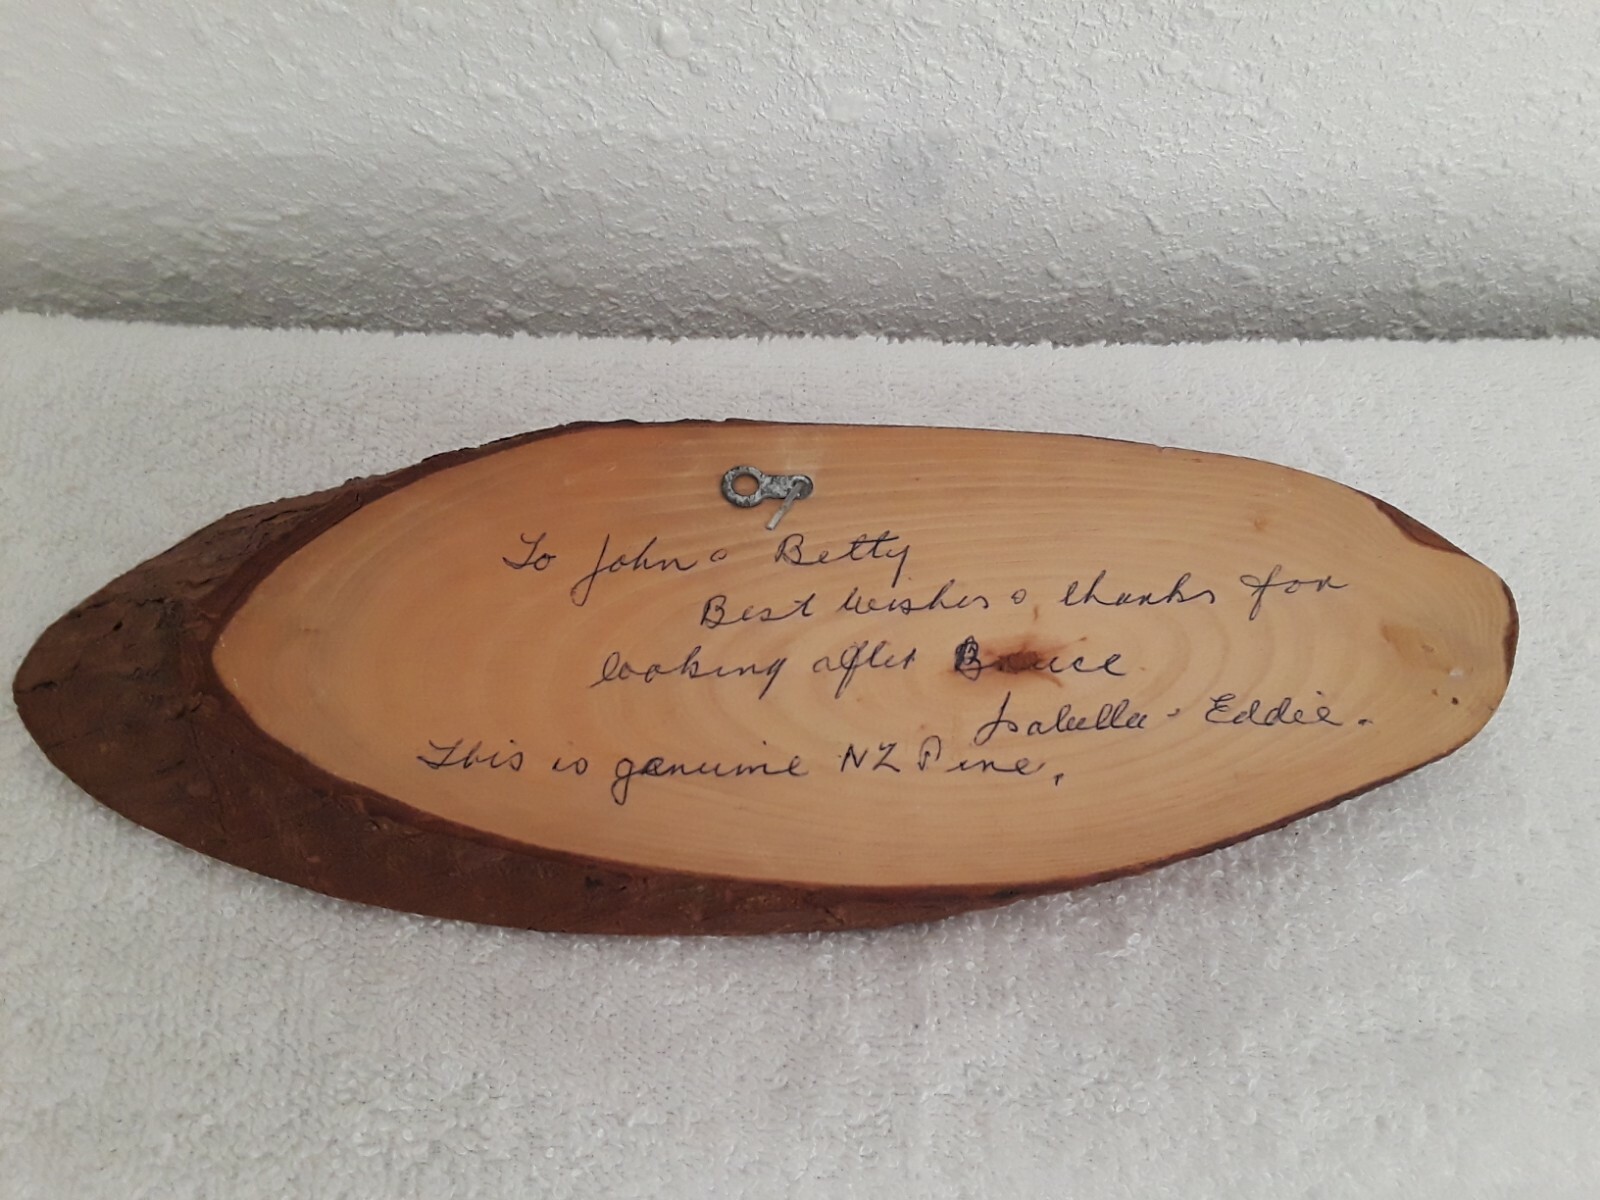 To John & Betty
Best wishes & thanks for
looking after Bruce
Isabella & Eddie.
This is genuine NZ Pine.